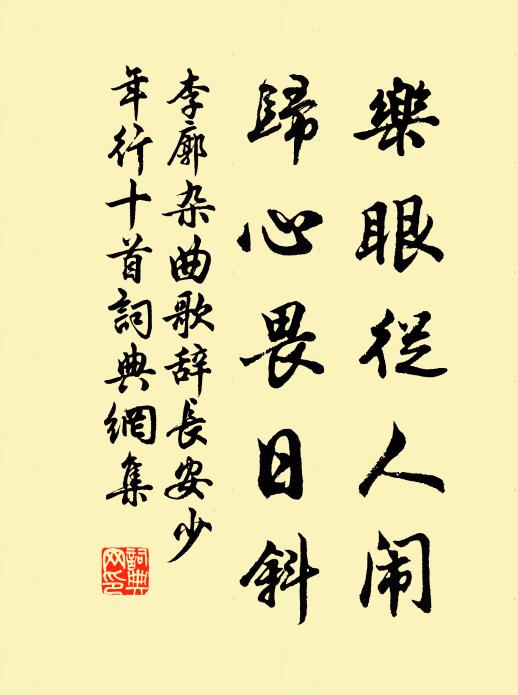 樂眼從人闹
歸心畏日斜
李廓杂曲歌辞長安少
年行十首詞典網集
詞典网印